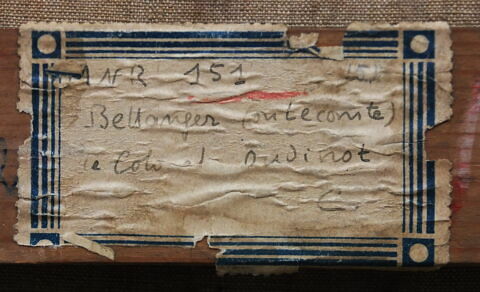 MNR 151
Bellanger (ou Lecomte)
le Colonel Oudinot